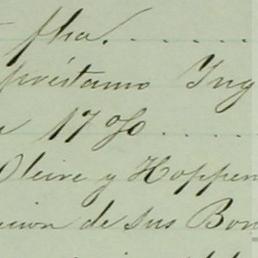 fha. . . . . . .
préstamo Ing
17 %. . . . .
Oleire y Hoppen
cion de sus Bon